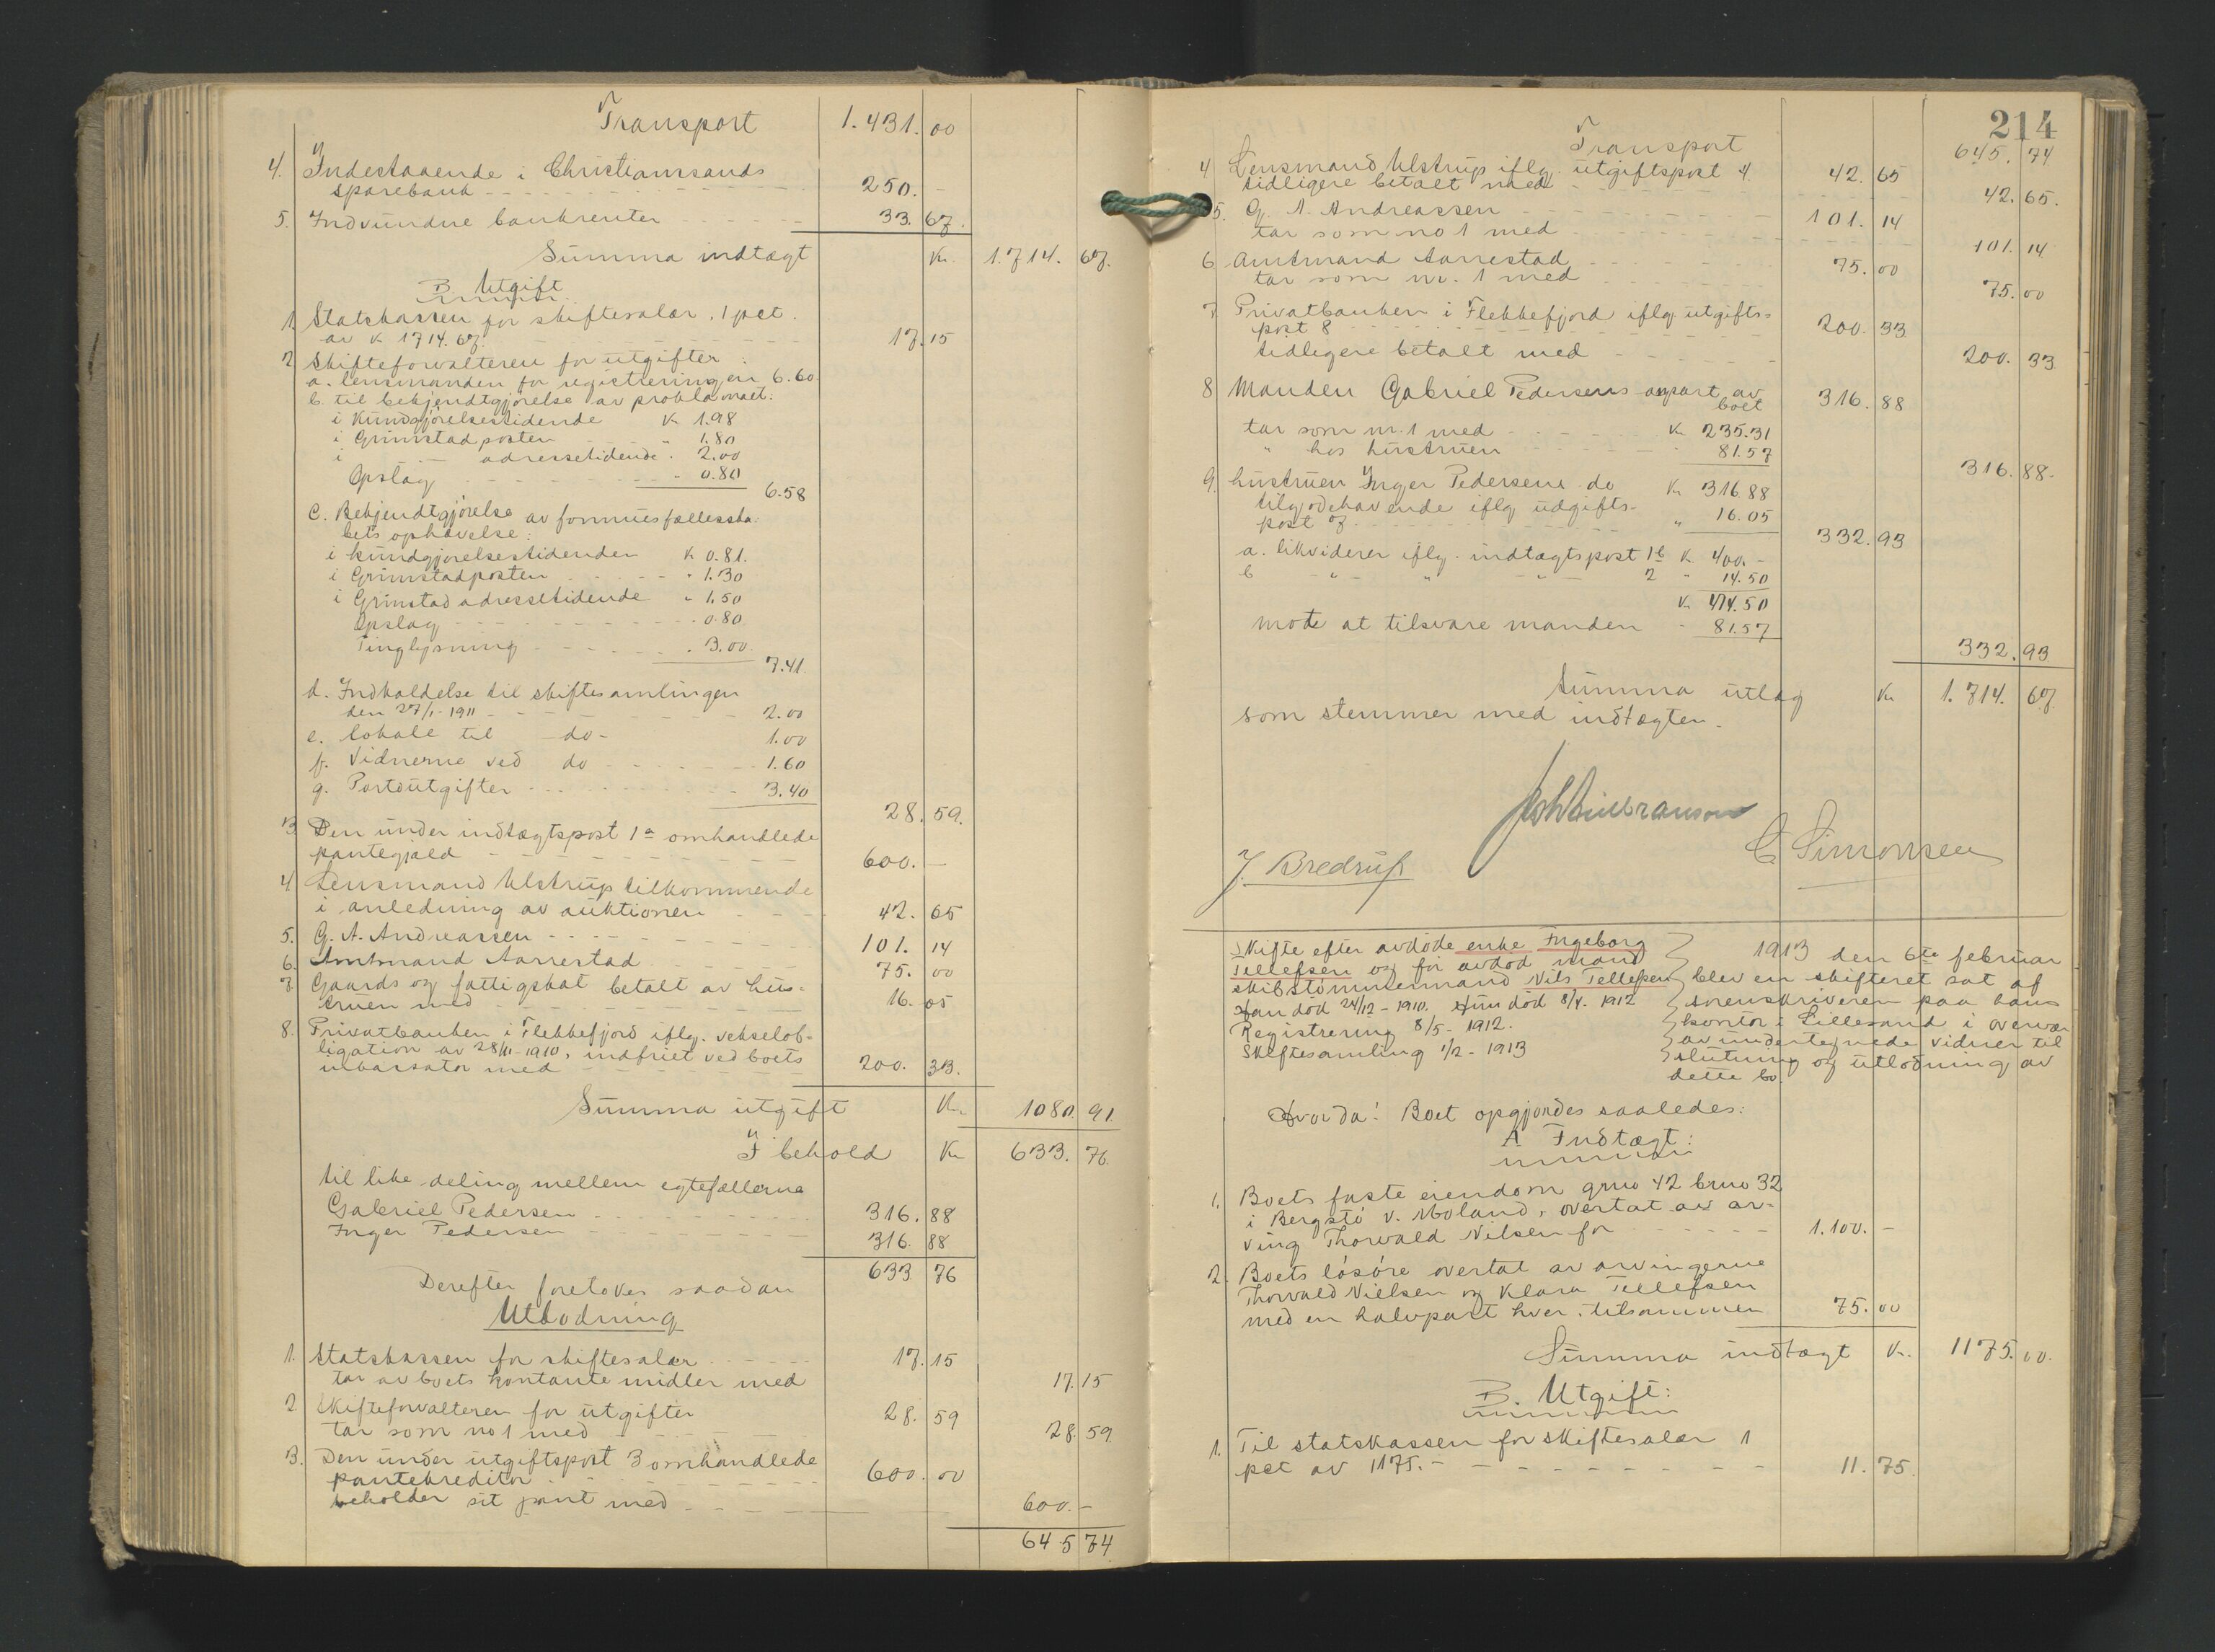 Transport 1.431. 00
4. Indestaaende i Christianssands
sparebank 250. -
5. Indvundne bankrenter 33. 67.
Summa indtægt Kr. 1.714. 67.
B. Utgift
1. Statskassen for skiftesalær, 1 pct.
av K 1714.67 17. 15
2 Skifteforvalteren for utgifter:
a. lensmanden for registreringen 6.60
b. til bekjendtgjørelse av proklamaet:
i Kundgjørelsestidende Kr 1.98
i Grimstadposten " 1.80
i - adressetidende . 2.00
Opslag " 0.80
6.58
c. Bekjendtgjørelse av formuesfællesska-
bets ophævelse:
i kundgjørelsestidenden K 0.81.
i Grimstadposten " 1.30
i Grimstad adressetidende " 1.50
Opslag 0.80
Tinglysning . 3.00
7.41.
d. Indkaldelse til skiftesamlingen
den 27/1-1911 2.00
e. Lokale til -do- 1.00
f. Vidnerne ved do 1.60
g. Portoutgifter 3.40
28. 59.
3 Den under indtægtspost 1a omhandlede
pantegjæld 600. -
4 Lensmand Ulstrup tilkommende
i anledning av auktionen 42. 65
5. G. A. Andreassen 101. 14
6. Amtmand Aarrestad 75. 00
7 Gaards og fattigskat betalt av hus-
truen med 16. 05
8. Privatbanken i Flekkefjord iflg. vekselob-
ligation av 28/11-1910, indfriet ved boets
inkassator med 200. 33.
Summa utgift Kr. 1080. 91.
I behold Kr 633. 76.
til like deling mellem egtefællerne
Gabriel Pedersen 316. 88
Inger Pedersen 316. 88
633 76
Derefter foretokes saadan
Utlodning
1. Statskassen for skiftesalær 17. 15
tar av boets kontante midler med 17. 15
2 Skifteforvalteren for utgifter 28. 59
tar som no 1 med 28. 59.
3. Den under utgiftspost 3 omhandlede
pantekreditor 600. 00
beholder sit pant med 600. -
645 74
214
Transport 645. 74
4 Lensmand Ulstrup iflg. utgiftspost 4 42. 65
tidligere betalt med 42. 65.
5. G. A. Andreassen 101. 14
tar som no 1 med 101. 14
6 Amtmand Aarrestad 75. 00
tar som nr. 1 med 75. 00
7 Privatbanken i Flekkefjord iflg utgifts-
post 8 200. 33
tidligere betalt med 200. 33
8 Manden Gabriel Pedersens anpart av
boet 316. 88
tar som nr. 1 med K 235.31
" hos hustruen 81.57
316. 88.
9. hustruen Inger Pedersens do Kr 316.88
tilgodehavende iflg udgifts-
post 7 " 16.05
332. 93
a. likviderer iflg. indtægtspost 1b K. 400. -
b - " - " - " - 2 - 14.50
Kr 414.50
mot at tilsvare manden - 81.57
332. 93
Summa utlag Kr 1.714. 67
som stemmer med indtægten.
J. Bredrup
C Simonsen
Skifte efter avdøde enke Ingeborg
Tellefsen og før avdød mand
skibstømmermand Nils Tellefsen
Han død 24/12-1910. Hun død 8/4. 1912
Registrering 8/5-1912.
Skiftesamling 1/2-1913
1913 den 6te februar
blev en skifteret sat af
sorenskriveren paa hans
kontor i Lillesand i overvær
av undertegnede vidner til
slutning og utlodning av
dette bo.
Hvorda: Boet opgjordes saaledes:
A Indtægt:
1. Boets faste eiendom gno 42 bruno 32
i Bergstø V. Moland, overtat av ar-
ving Thorvald Nilsen for 1.100. -
2. Boets løsøre overtat av arvingerne
Thorvald Nielsen og Klara Tellefsen
med en halvpart hver, tilsammen 75. 00
Summa indtægt Kr. 1175. 00.
B. Utgift:
1. Til statskassen for skiftesalær 1
pct av 1175.- 11. 75.